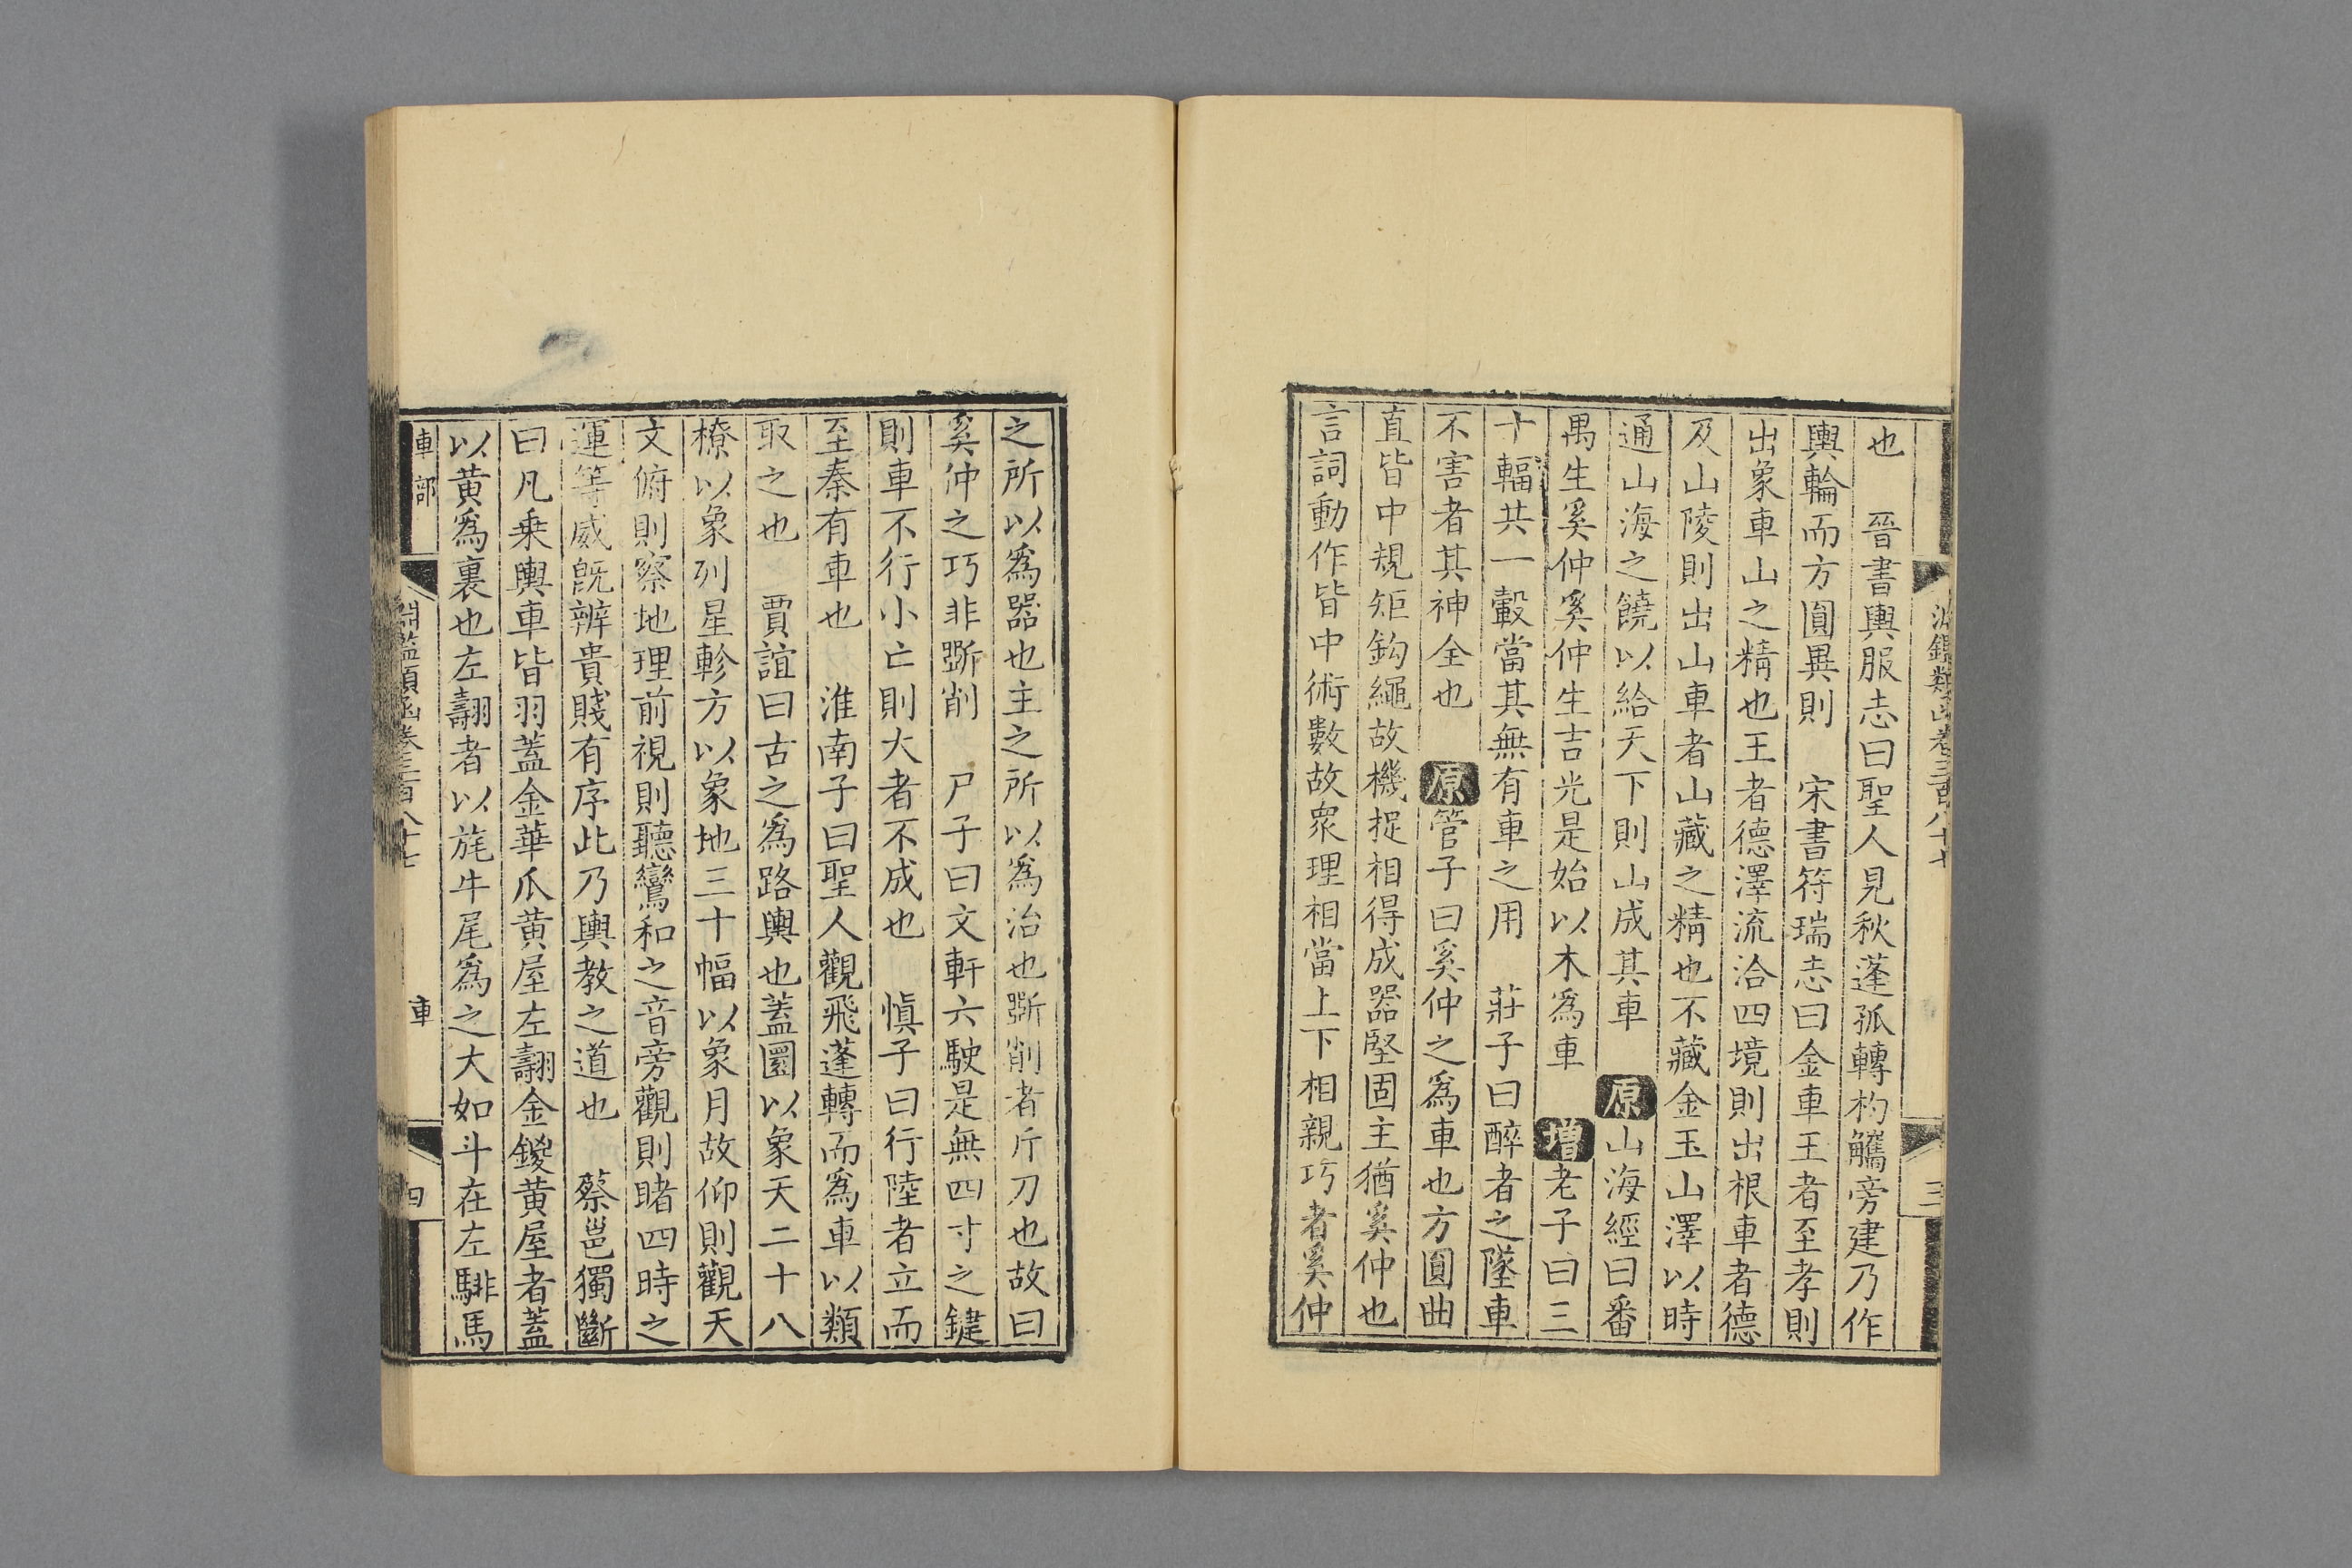 淵鑑類函卷三百八十七
三
也　晉書輿服志曰聖人見秋蓬孤轉杓觿旁建乃作
輿輪而方圓異則　宋書符瑞志曰金車王者至孝則
出象車山之精也王者德澤流洽四境則出根車者德
及山陵則出山車者山藏之精也不藏金玉山澤以時
通山海之饒以給天下則山成其車　原山海經曰番
禺生奚仲奚仲生吉光是始以木爲車　增老子曰三
十輻共一轂當其無有車之用　莊子曰醉者之墜車
不害者其神全也　原管子曰奚仲之爲車也方圓曲
直皆中規矩鈎繩故機捉相得成器堅固主猶奚仲也
言詞動作皆中術數故衆理相當上下相親巧者奚仲
之所以爲器也主之所以爲治也斲削者斤刀也故曰
奚仲之巧非斲削　尸子曰文軒六駃是無四寸之鍵
則車不行小亡則大者不成也　慎子曰行陸者立而
至秦有車也　淮南子曰聖人觀飛蓬轉而爲車以類
取之也　賈誼曰古之爲路輿也蓋圜以象天二十八
橑以象列星軫方以象地三十幅以象月故仰則觀天
文俯則察地理前視則聽鸞和之音旁觀則睹四時之
運等威旣辨貴賤有序此乃輿教之道也　蔡邕獨斷
曰凡乗輿車皆羽蓋金華爪黄屋左翿金鍐黄屋者蓋
以黄爲裏也左翿者以旄牛尾爲之大如斗在左騑馬
車部
淵鑑類函卷三百八十七
車
四